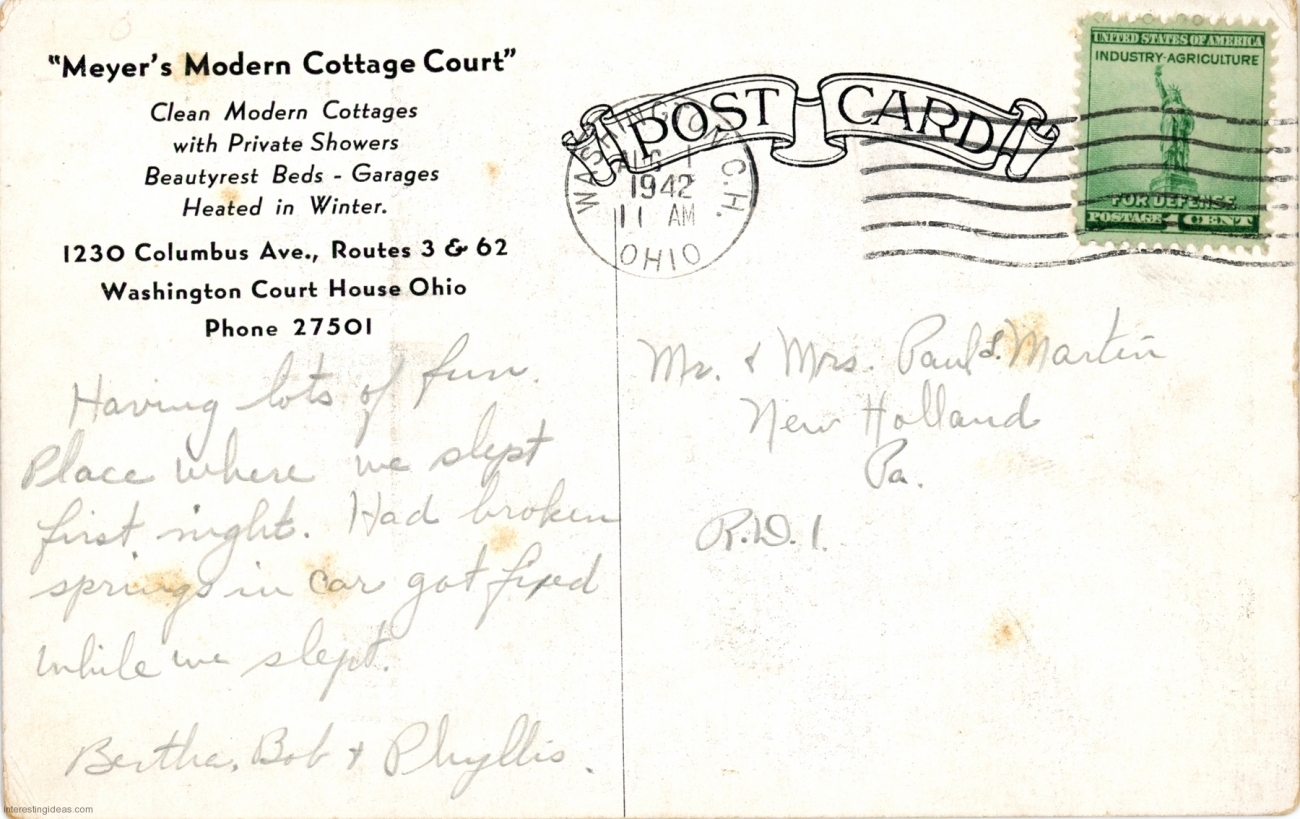 "Meyer's Modern Cottage Court"
Clean Modern Cottages
with Private Showers
Beautyrest Beds - Garages
Heated in Winter.
1230 Columbus Ave., Routes 3 & 62
Washington Court House Ohio
Phone 27501
Having lots of fun.
Place where we slept
first night. Had broken
springs in car got fixed
while we slept.
Bertha, Bob & Phyllis.
POST CARD
WASHINGTON C.H.
AUG 1
1942
11 AM
OHIO
UNITED STATES OF AMERICA
INDUSTRY·AGRICULTURE
FOR DEFENSE
POSTAGE 1 CENT
Mr. & Mrs. Paul S. Martin
New Holland
Pa.
R.D. 1.
interestingideas.com